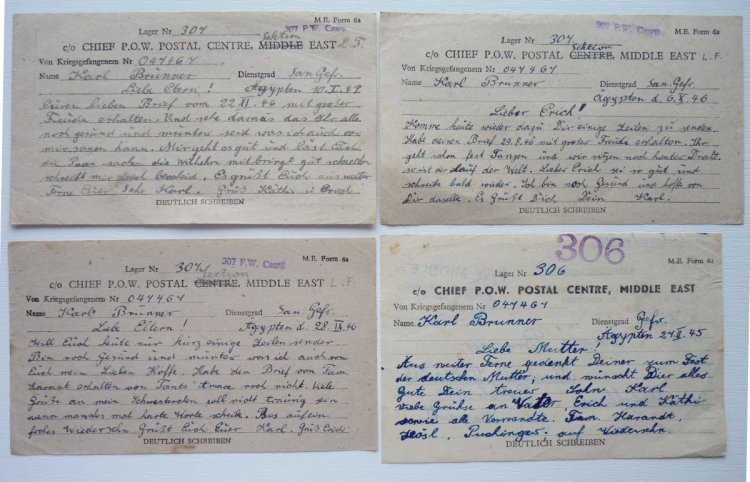 Lager Nr 307
307 P.W. Camp
M.E. Form 6a
Sektion
c/o CHIEF P.O.W. POSTAL CENTRE, MIDDLE EAST
Von Kriegsgefangenem Nr 047467
Name Karl Brunner Dienstgrad San. Gefr.
Liebe Eltern! Ägypten 10.I.47
Euren lieben Brief vom 22 XI. 46 mit großer
Freude erhalten. Und sehe daraus das Ihr alle
noch gesund und munter seid was ich auch von
mir sagen kann. Mir geht es gut und
die
Ferne Euer Sohn Karl. Grüß Käthi u Erich
DEUTLICH SCHREIBEN
Lager Nr 307
307 P.W. Camp
M.E. Form 6a
Sektion
c/o CHIEF P.O.W. POSTAL CENTRE, MIDDLE EAST L.F.
Von Kriegsgefangenem Nr 047467
Name Karl Brunner Dienstgrad San. Gefr.
Ägypten d. 6.X.46
Lieber Erich!
Komme heute wieder dazu Dir einige Zeilen zu senden.
Habe deinen Brief 29.8.46 mit großer Freude erhalten. Ihr
geht schon fest Tanzen und wir sitzen noch hinter Draht.
so ist der Lauf der Welt. Lieber Erich sei so gut und
schreibe bald wieder. Ich bin noch Gesund und hoffe von
Dir daselbe. Es Grüßt Dich Dein Karl.
DEUTLICH SCHREIBEN
Lager Nr 307
307 P.W. Camp
M.E. Form 6a
Section
c/o CHIEF P.O.W. POSTAL CENTRE, MIDDLE EAST L.F.
Von Kriegsgefangenem Nr 047467
Name Karl Brunner Dienstgrad San Gefr.
Liebe Eltern! Ägypten d. 28 IX 46
Will Euch heute nur kurz einige Zeilen senden.
Bin noch Gesund und munter was ich auch von
Euch mein Lieben Hoffe. Habe den Brief von Fam
erhalten von Tante noch nicht. Viele
Grüße an mein Schwesterchen soll nicht traurig sein
wenn manches mal harte Worte schreibe. Bis auf ein
frohes Wiedersehn Grüßt Euch Euer Karl. Grüß Erich
DEUTLICH SCHREIBEN
306
Lager Nr 306
M.E. Form 6a
c/o CHIEF P.O.W. POSTAL CENTRE, MIDDLE EAST
Von Kriegsgefangenem Nr 047467
Name Karl Brunner Dienstgrad Gefr.
Ägypten 27 II 45
Liebe Mutter
Aus weiter Ferne gedenkt Deiner zum Fest
der deutschen Mutter, und wünscht Dier alles
Gute Dein treuer Sohn Karl
Viele Grühse an Vater Erich und Käthi
sowie alle Verwandte. Fam. Karandt,
Hösl, Puchinger auf Wiedersehn.
DEUTLICH SCHREIBEN